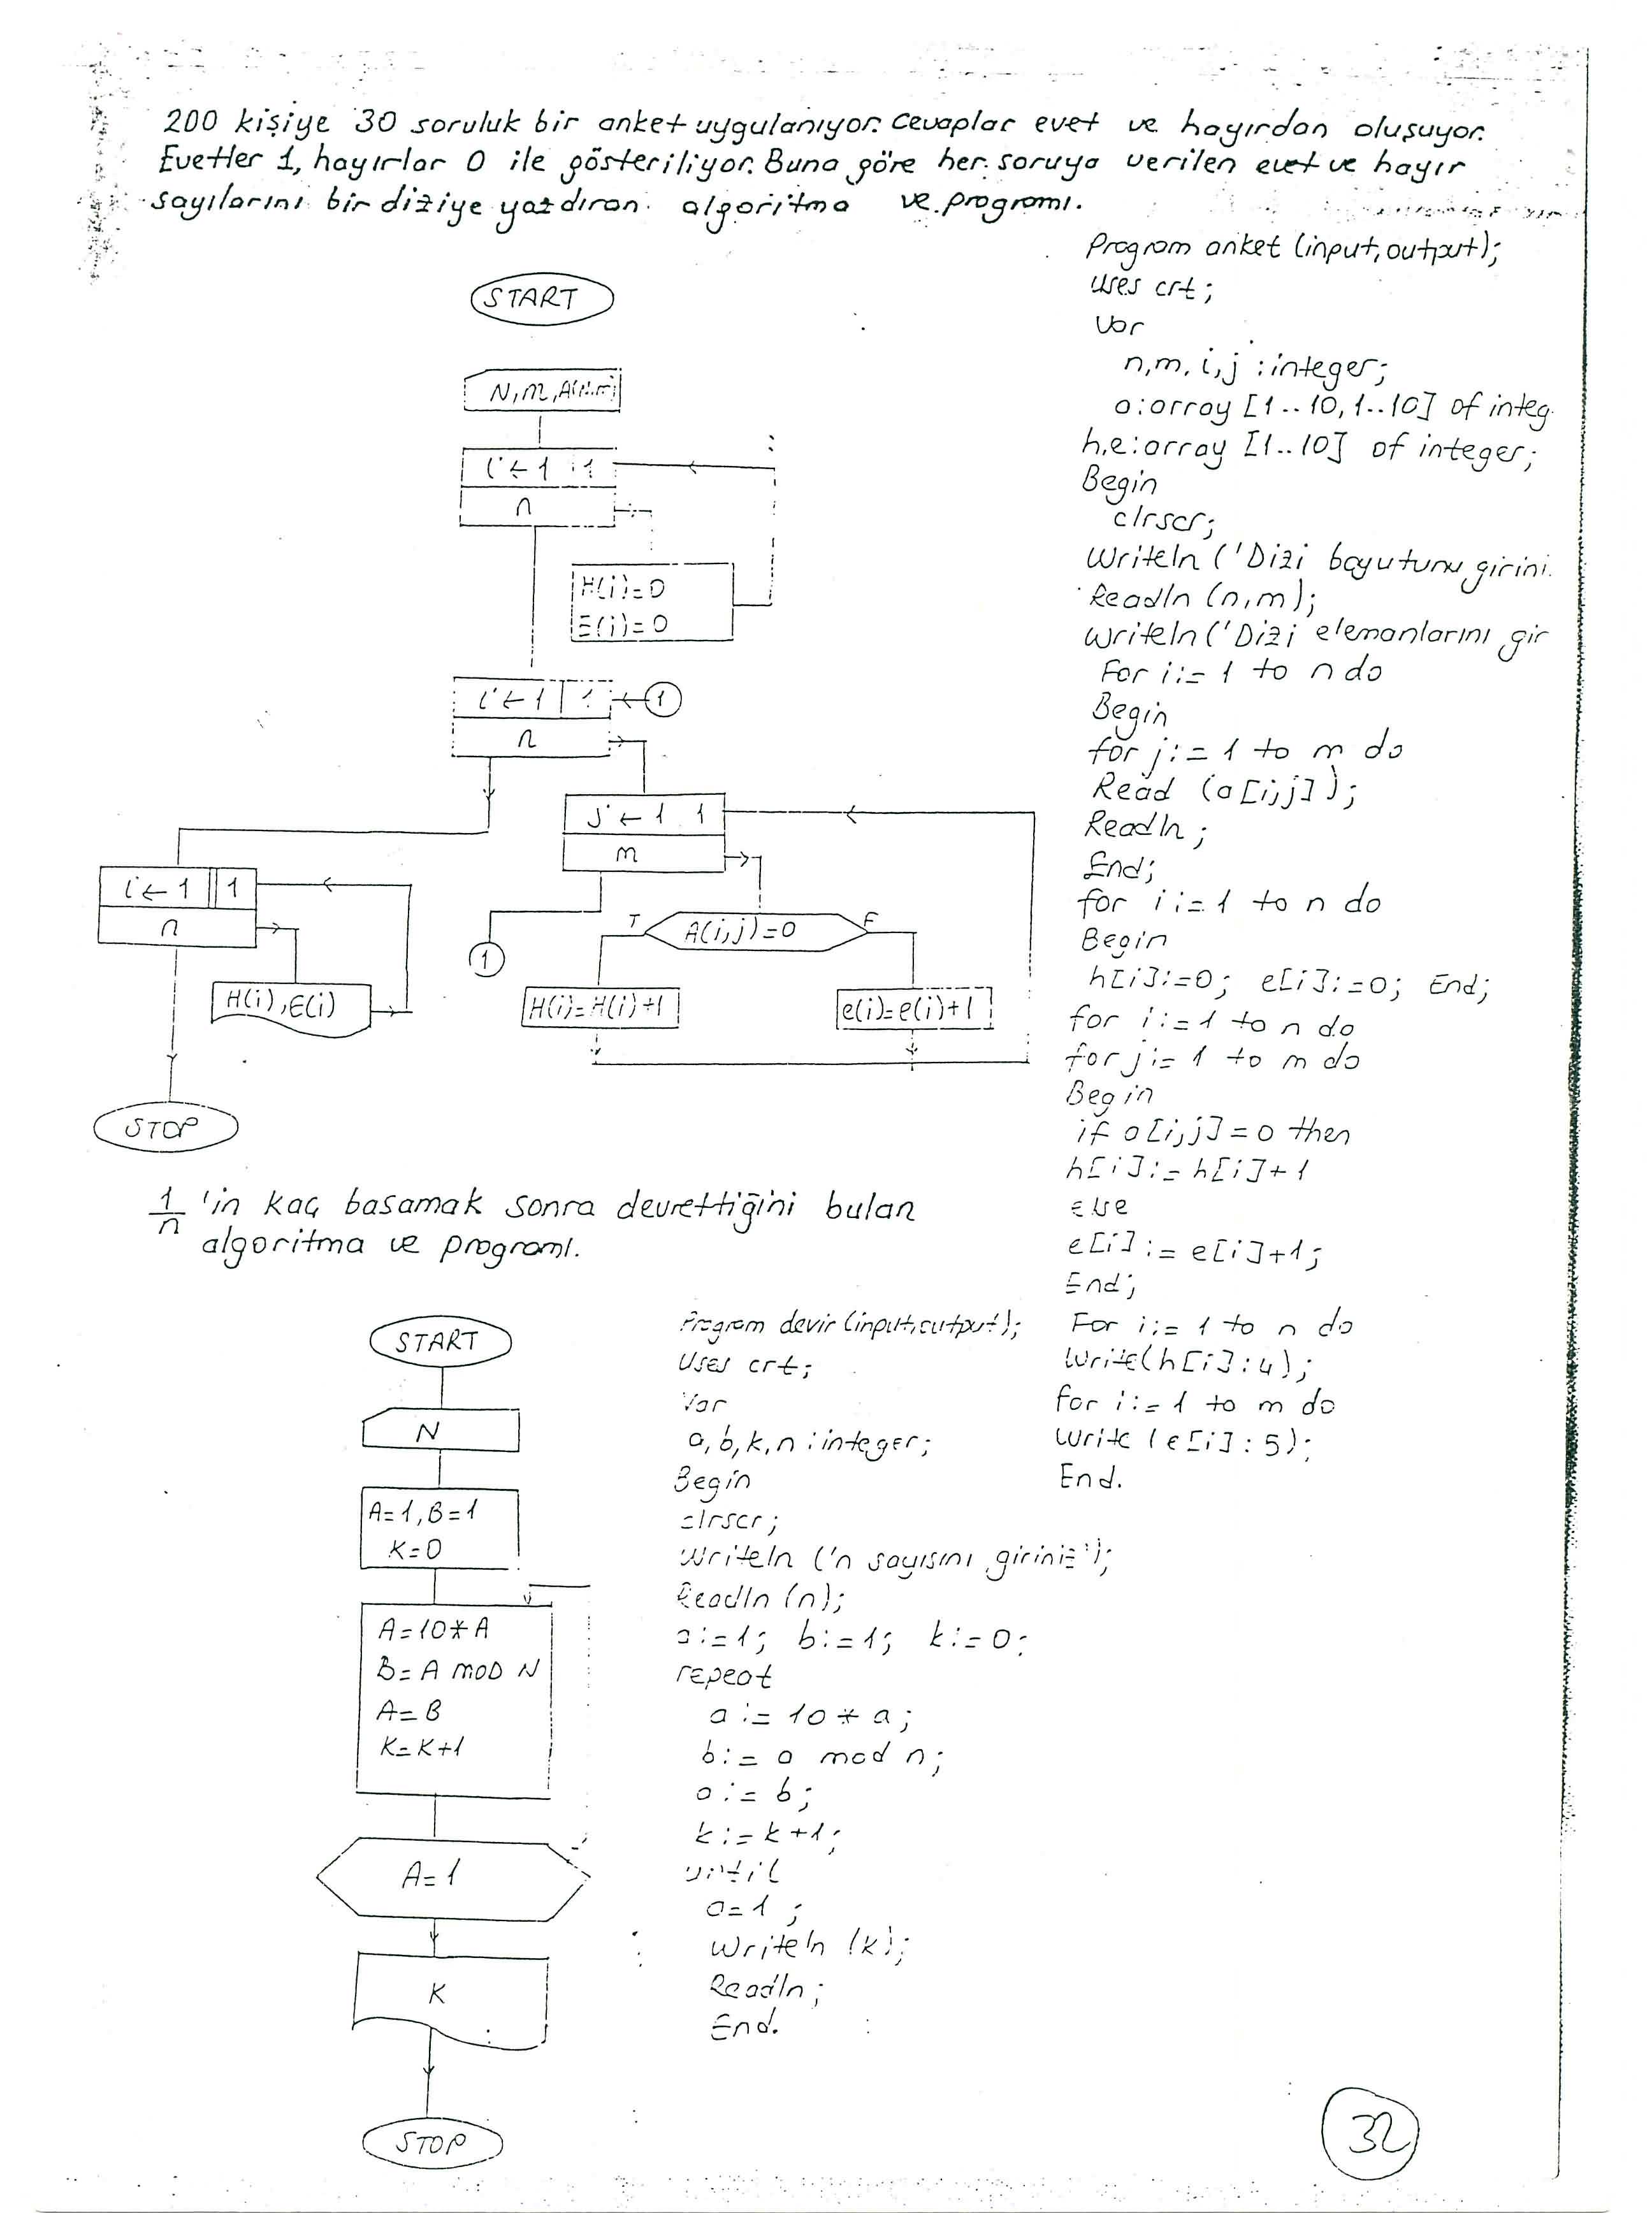 200 kişiye 30 soruluk bir anket uygulanıyor. Cevaplar evet ve hayırdan oluşuyor.
Evetler 1, hayırlar 0 ile gösteriliyor. Buna göre her soruya verilen evet ve hayır
sayılarını bir diziye yazdıran algoritma ve programı.
START
N,M,A(N,M)
i←1 1
n
H(i)=0
E(i)=0
i←1 1
1
n
j←1 1
m
i←1 1
n
A(i,j)=0
T
F
1
H(i),E(i)
H(i)=H(i)+1
e(i)=e(i)+1
STOP
Program anket (input,output);
Uses crt;
Var
n,m,i,j :integer;
a:array [1..10,1..10] of integ
h,e:array [1..10] of integer;
Begin
clrscr;
Writeln ('Dizi boyutunu girini
Readln (n,m);
Writeln ('Dizi elemanlarını gir
For i:=1 to n do
Begin
for j:=1 to m do
Read (a[i,j]);
Readln;
End;
for i:=1 to n do
Begin
h[i]:=0; e[i]:=0; End;
for i:=1 to n do
for j:=1 to m do
Begin
if a[i,j]=0 then
h[i]:=h[i]+1
else
e[i]:=e[i]+1;
End;
For i:=1 to n do
Write(h[i]:4);
for i:=1 to m do
Write (e[i]:5);
End.
1/n 'in kaç basamak sonra devrettiğini bulan
algoritma ve programı.
START
N
A=1,B=1
K=0
A=10*A
B=A MOD N
A=B
K=K+1
A=1
K
STOP
Program devir (input,output);
Uses crt;
Var
a,b,k,n :integer;
Begin
clrscr;
Writeln ('n sayısını giriniz');
Readln (n);
a:=1; b:=1; k:=0;
repeat
a:=10*a;
b:=a mod n;
a:=b;
k:=k+1;
until
a=1;
Writeln (k);
Readln;
End.
32